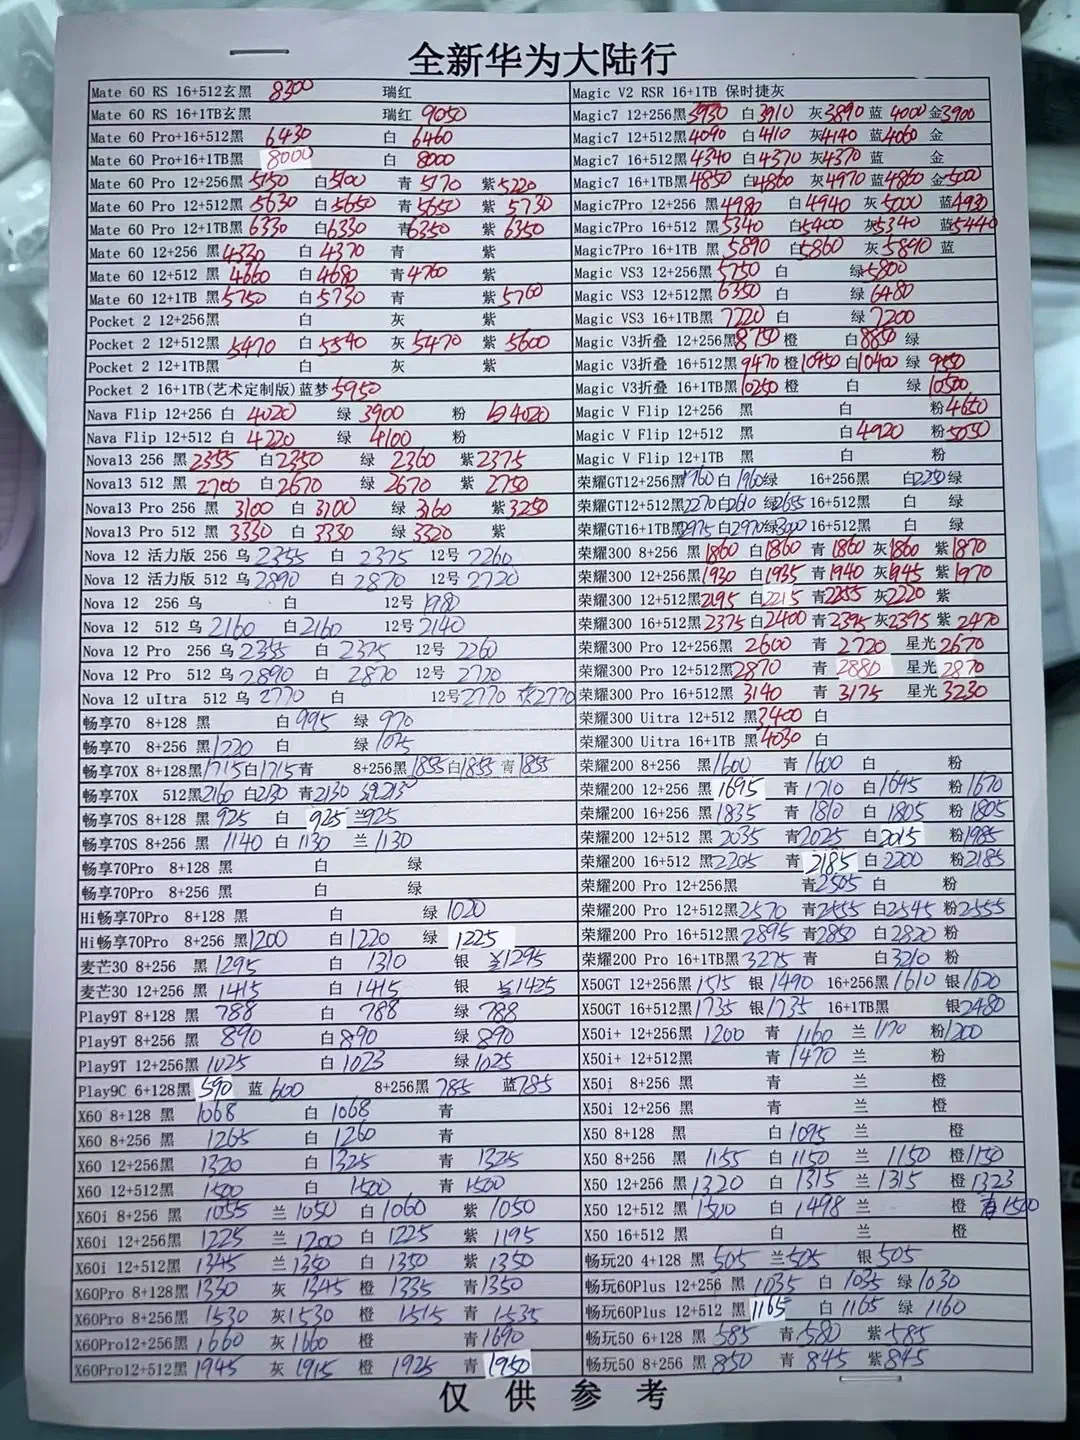 全新华为大陆行
Mate 60 RS 16+512玄黑 8300 瑞红
Mate 60 RS 16+1TB玄黑 瑞红 9050
Mate 60 Pro+16+512黑 6430 白 6460
Mate 60 Pro+16+1TB黑 8000 白 8000
Mate 60 Pro 12+256黑 5150 白5100 青 5170 紫5220
Mate 60 Pro 12+512黑 5630 白5650 青5650 紫 5730
Mate 60 Pro 12+1TB黑 6330 白6330 青6350 紫 6350
Mate 60 12+256 黑4330 白 4370 青 紫
Mate 60 12+512 黑 4360 白 4680 青4760 紫
Mate 60 12+1TB 黑5750 白 5730 青 紫 5760
Pocket 2 12+256黑 白 灰 紫
Pocket 2 12+512黑 5470 白 5540 灰 5470 紫 5600
Pocket 2 12+1TB黑 白 灰 紫
Pocket 2 16+1TB(艺术定制版)蓝梦 5950
Nava Flip 12+256 白 4020 绿 3900 粉 白4020
Nava Flip 12+512 白 4220 绿 4100 粉
Nova13 256 黑 2355 白2350 绿 2360 紫2375
Nova13 512 黑 2700 白2670 绿 2670 紫 2750
Nova13 Pro 256 黑 3100 白 3100 绿 3160 紫3250
Nova13 Pro 512 黑 3330 白 3330 绿 3320 紫
Nova 12 活力版 256 乌 2355 白 2375 12号 2260
Nova 12 活力版 512 乌 2890 白 2870 12号 2720
Nova 12 256 乌 白 12号 1980
Nova 12 512 乌 2160 白2160 12号 2140
Nova 12 Pro 256 乌 2355 白 2375 12号 2260
Nova 12 Pro 512 乌 2890 白 2870 12号 2720
Nova 12 uItra 512 乌 2770 白 12号2770 灰2770
畅享70 8+128 黑 白 995 绿 970
畅享70 8+256 黑1220 白 绿 1075
畅享70X 8+128黑1715 白1715 青 8+256黑1855 白1855 青1855
畅享70X 512黑2160 白2130 青2130
畅享70S 8+128 黑 925 白 925 兰925
畅享70S 8+256 黑 1140 白 1130 兰 1130
畅享70Pro 8+128 黑 白 绿
畅享70Pro 8+256 黑 白 绿
Hi畅享70Pro 8+128 黑 白 绿 1020
Hi畅享70Pro 8+256 黑1200 白1220 绿 1225
麦芒30 8+256 黑 1295 白 1310 银 1295
麦芒30 12+256 黑 1415 白 1415 银 1425
Play9T 8+128 黑 788 白 788 绿 788
Play9T 8+256 黑 890 白890 绿 890
Play9T 12+256黑 1025 白 1023 绿 1025
Play9C 6+128黑 590 蓝 600 8+256黑 785 蓝785
X60 8+128 黑 1068 白 1068 青
X60 8+256 黑 1265 白 1260 青
X60 12+256黑 1320 白 1325 青 1325
X60 12+512黑 1500 白 1500 青 1500
X60i 8+256 黑 1055 兰 1050 白1060 紫 1050
X60i 12+256黑 1225 兰 1200 白 1225 紫 1195
X60i 12+512黑 1345 兰 1350 白 1350 紫 1350
X60Pro 8+128黑 1330 灰 1345 橙 1335 青1350
X60Pro 8+256黑 1530 灰1530 橙 1515 青 1535
X60Pro12+256黑 1660 灰1660 橙 青1690
X60Pro12+512黑 1945 灰 1915 橙 1925 青 1950
Magic V2 RSR 16+1TB 保时捷灰
Magic7 12+256黑3930 白 3910 灰3890 蓝 4000 金3900
Magic7 12+512黑4090 白 4110 灰4140 蓝4060 金
Magic7 16+512黑 4340 白4370 灰4370 蓝 金
Magic7 16+1TB黑4850 白4860 灰4970 蓝4860 金5000
Magic7Pro 12+256 黑4980 白 4940 灰 5000 蓝4930
Magic7Pro 16+512 黑 5340 白5400 灰5340 蓝5440
Magic7Pro 16+1TB 黑 5890 白5860 灰 5890 蓝
Magic VS3 12+256黑 5750 白 绿5800
Magic VS3 12+512黑 6350 白 绿 6480
Magic VS3 16+1TB黑 7220 白 绿 7200
Magic V3折叠 12+256黑8750 橙 白8850 绿
Magic V3折叠 16+512黑9470 橙10950 白10400 绿
Magic V3折叠 16+1TB黑10250 橙 白 绿 10500
Magic V Flip 12+256 黑 白 粉4650
Magic V Flip 12+512 黑 白 4920 粉5050
Magic V Flip 12+1TB 黑 白 粉
荣耀GT12+256黑1960 白1960 绿 16+256黑 白2250 绿
荣耀GT12+512黑2270 白2610 绿2655 16+512黑 白 绿
荣耀GT16+1TB黑2975 白2970 绿3000 16+512黑 白 绿
荣耀300 8+256 黑1860 白1860 青 1860 灰1860 紫1870
荣耀300 12+256黑1930 白1935 青1940 灰1945 紫1970
荣耀300 12+512黑2195 白2215 青2255 灰2220 紫
荣耀300 16+512黑2375 白2400 青2395 灰2395 紫 2470
荣耀300 Pro 12+256黑 2600 青 2720 星光2670
荣耀300 Pro 12+512黑2870 青 2880 星光2870
荣耀300 Pro 16+512黑 3140 青 3175 星光 3230
荣耀300 Uitra 12+512 黑3400 白
荣耀300 Uitra 16+1TB 黑4030 白
荣耀200 8+256 黑1600 青 1600 白 粉
荣耀200 12+256 黑1695 青1710 白1695 粉1670
荣耀200 16+256 黑1835 青 1810 白 1805 粉1805
荣耀200 12+512 黑 2035 青2025 白2015 粉1985
荣耀200 16+512 黑2205 青 2185 白 2200 粉2185
荣耀200 Pro 12+256黑 青2505 白 粉
荣耀200 Pro 12+512黑2570 青2555 白2545 粉2555
荣耀200 Pro 16+512黑2895 青2850 白2820 粉
荣耀200 Pro 16+1TB黑3275 青 白3210 粉
X50GT 12+256黑 1515 银 1490 16+256黑1610 银1620
X50GT 16+512黑1735 银1735 16+1TB黑 银2480
X50i+ 12+256黑 1200 青 1160 兰 1170 粉1200
X50i+ 12+512黑 青 1470 兰 粉
X50i 8+256 黑 青 兰 橙
X50i 12+256 黑 青 兰 橙
X50 8+128 黑 白1095 兰 橙
X50 8+256 黑 1155 白1150 兰 1150 橙1150
X50 12+256 黑 1320 白 1315 兰 1315 橙1323
X50 12+512 黑 1500 白 1498 兰 橙 青1500
X50 16+512 黑 白 兰 橙
畅玩20 4+128 黑 505 兰505 银 505
畅玩60Plus 12+256 黑 1035 白 1035 绿 1030
畅玩60Plus 12+512 黑 1165 白 1165 绿 1160
畅玩50 6+128 黑 585 青 580 紫585
畅玩50 8+256 黑 850 青 845 紫845
仅供参考